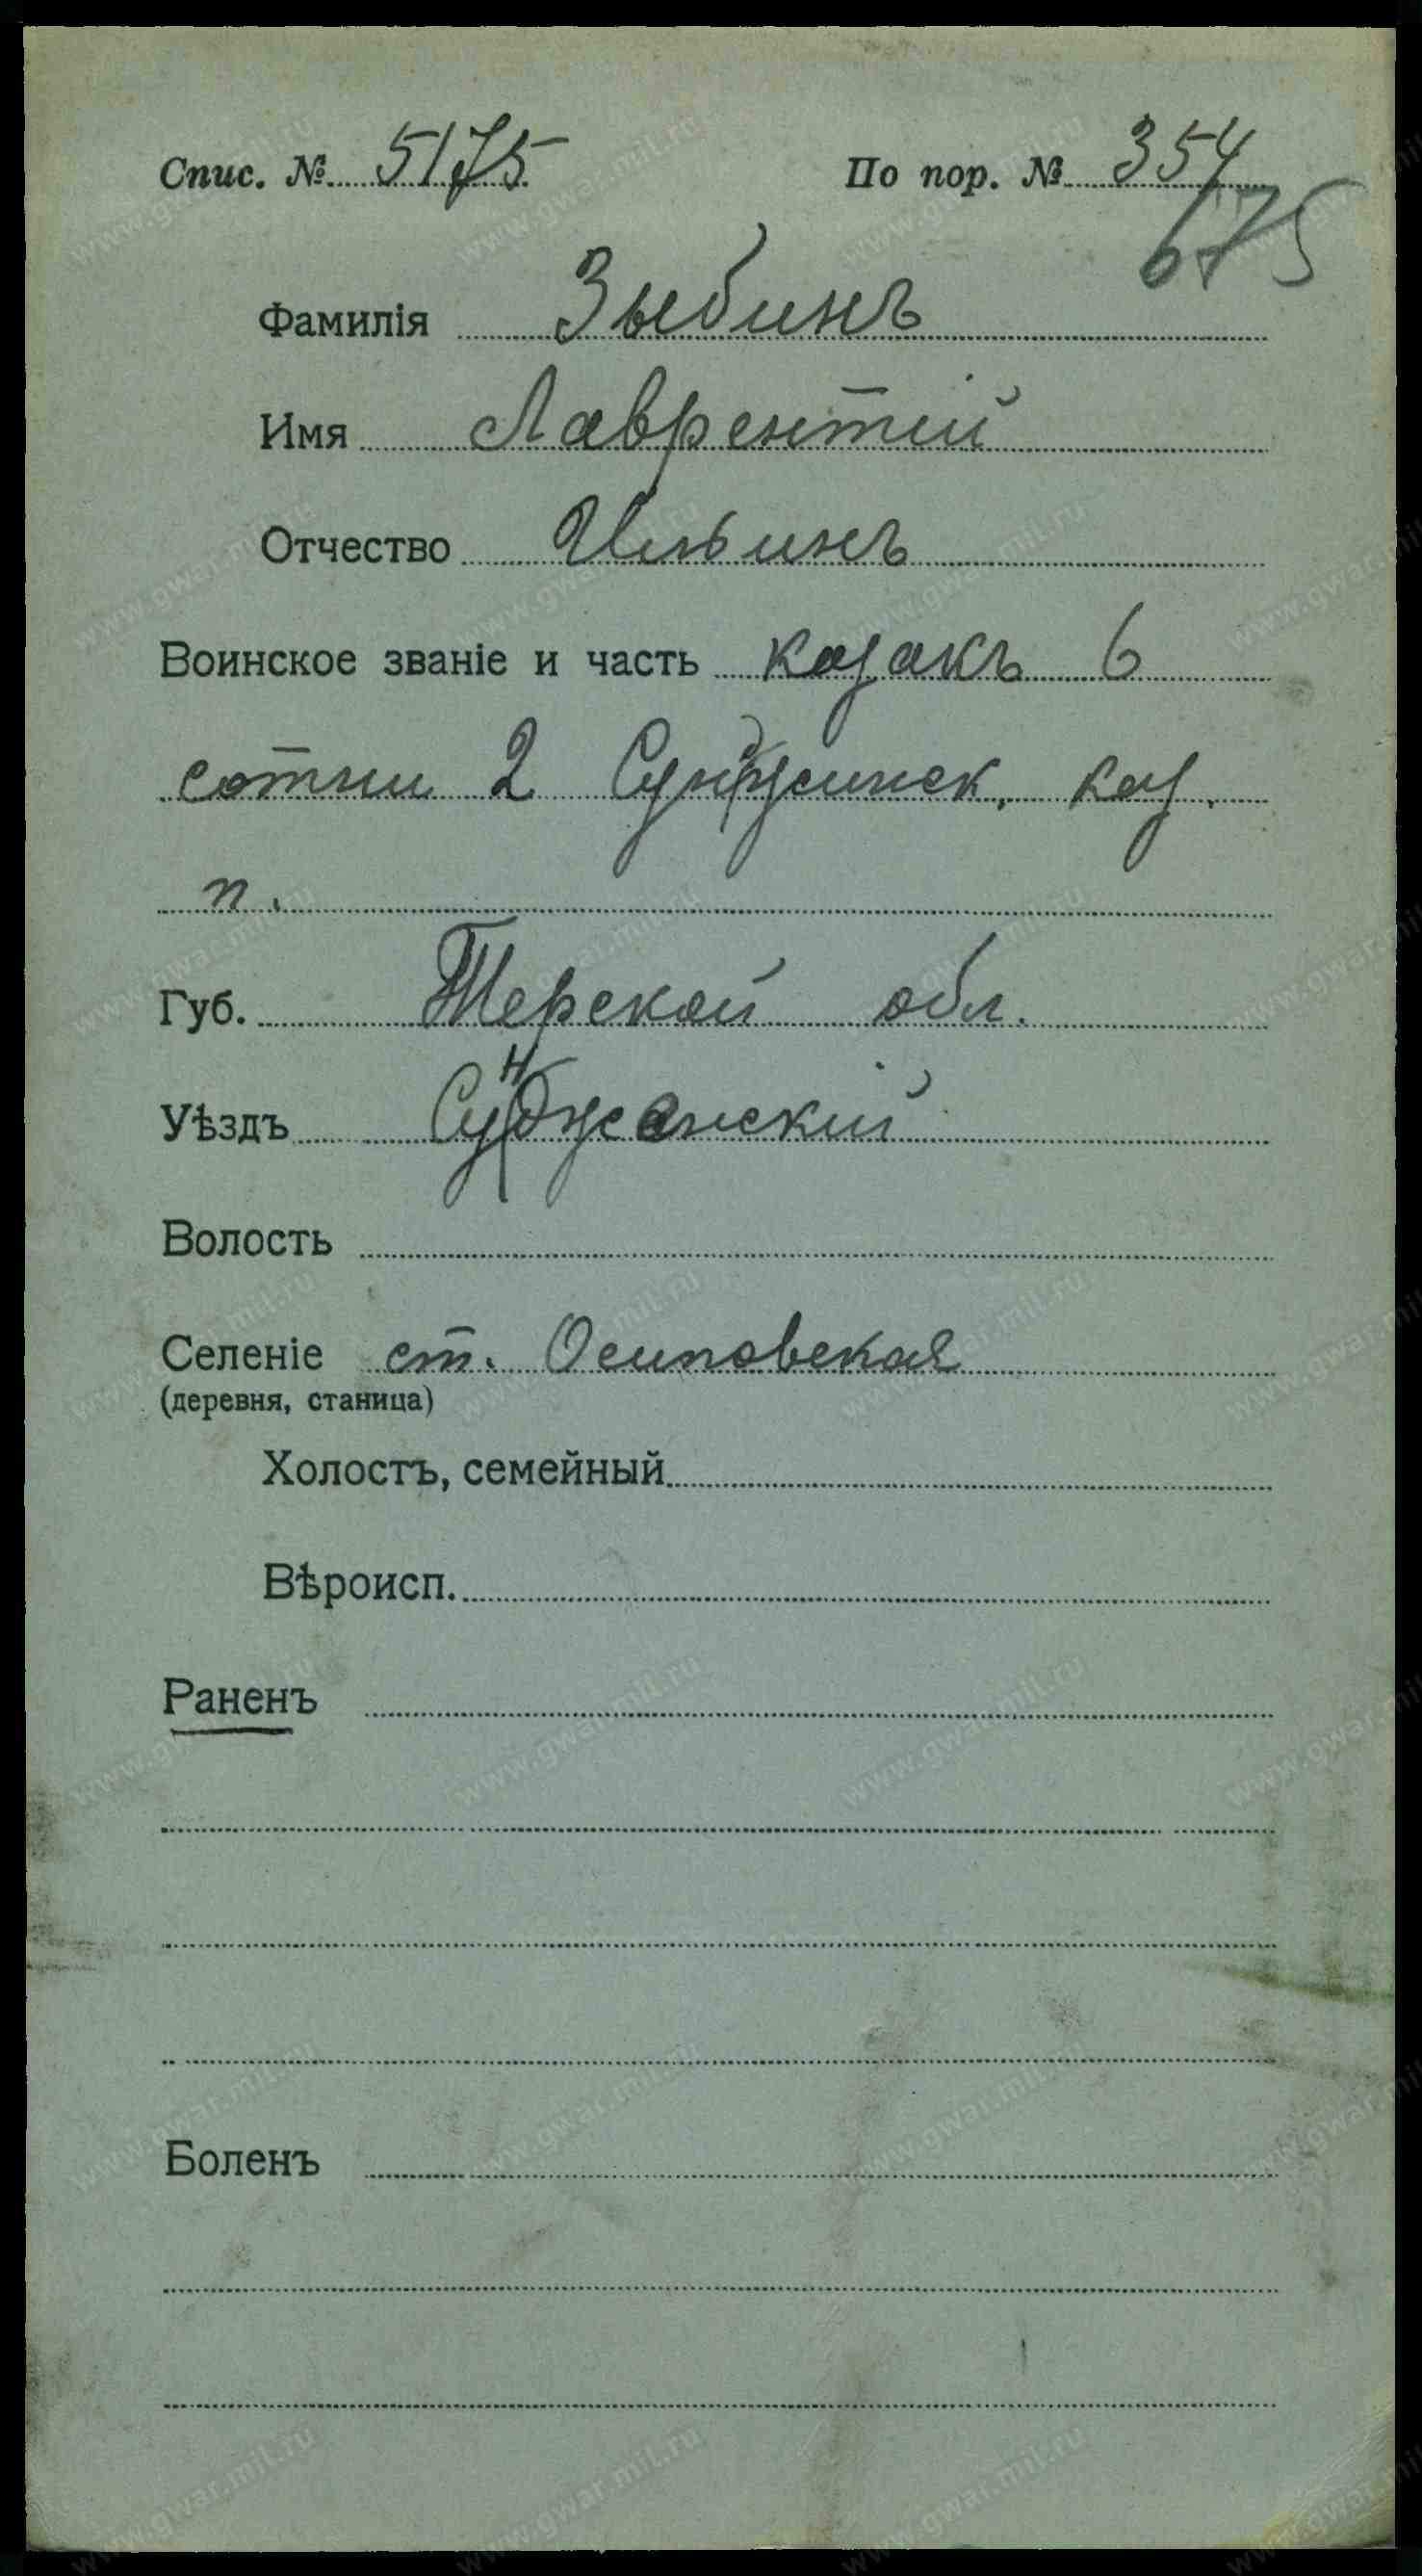 Спис. № 5175 По пор. № 354
675
Фамилія Зыбинъ
Имя Лаврентій
Отчество Ильинъ
Воинское званіе и часть казакъ 6
сотни 2 Сунженск. каз.
п.
Губ. Терской обл.
Уѣздъ Сунженский
Волость
Селеніе ст. Осиповская
(деревня, станица)
Холостъ, семейный
Вѣроисп.
Раненъ
Боленъ